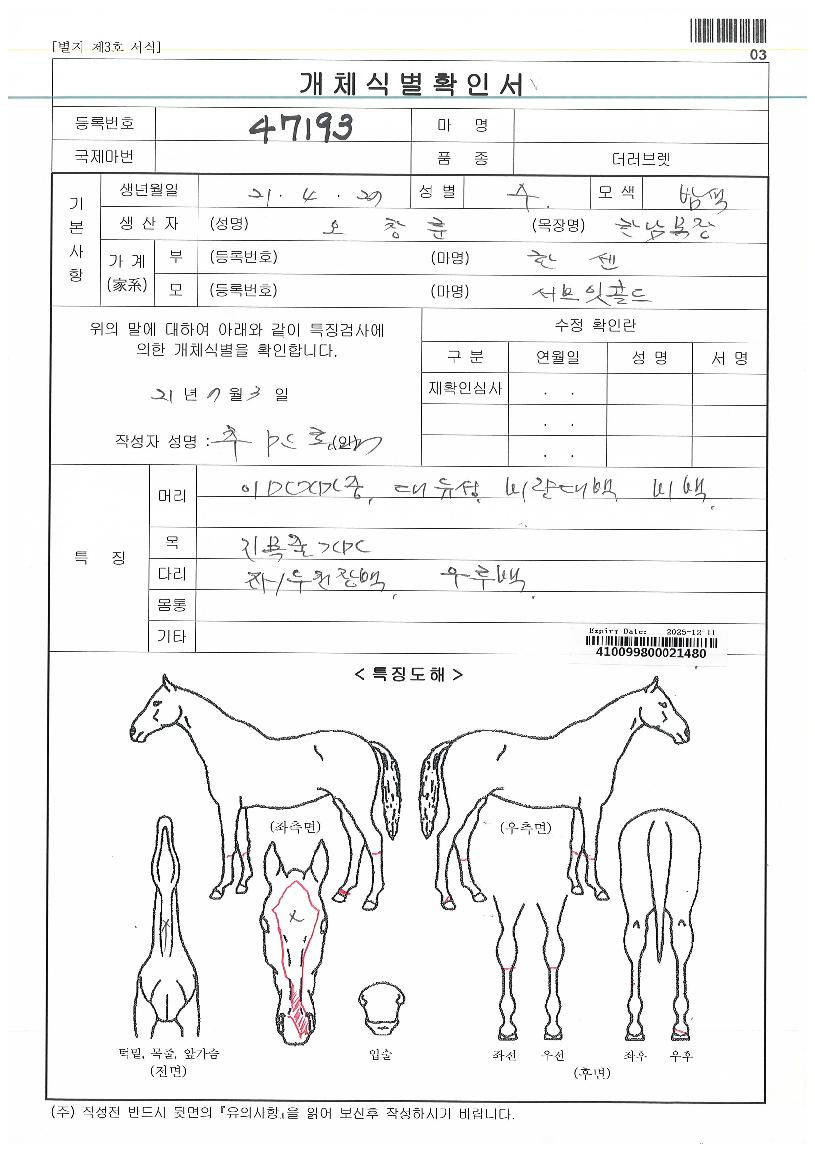 [별지 제3호 서식]
03
개체식별확인서
등록번호 47193 마 명
국제마번 품 종 더러브렛
기본사항
생년월일 21 . 4 . 20 성 별 수 모 색 밤색
생 산 자 (성명) 오 창 훈 (목장명) 한남목장
가 계 (家系)
부 (등록번호) (마명) 한 센
모 (등록번호) (마명) 서브잇골드
위의 말에 대하여 아래와 같이 특징검사에
의한 개체식별을 확인합니다.
21 년 7 월 3 일
작성자 성명 :
수정 확인란
구 분 연월일 성 명 서 명
재확인심사 . .
. .
. .
특 징
머리 대유성, 비량대백, 비백.
목
다리 우후백.
몸통
기타
Expiry Date: 2025-12-11
410099800021480
< 특징도해 >
(좌측면) (우측면)
턱밑, 목줄, 앞가슴
(전면)
입술
좌전 우전 좌후 우후
(후면)
(주) 작성전 반드시 뒷면의 『유의사항』을 읽어 보신후 작성하시기 바랍니다.